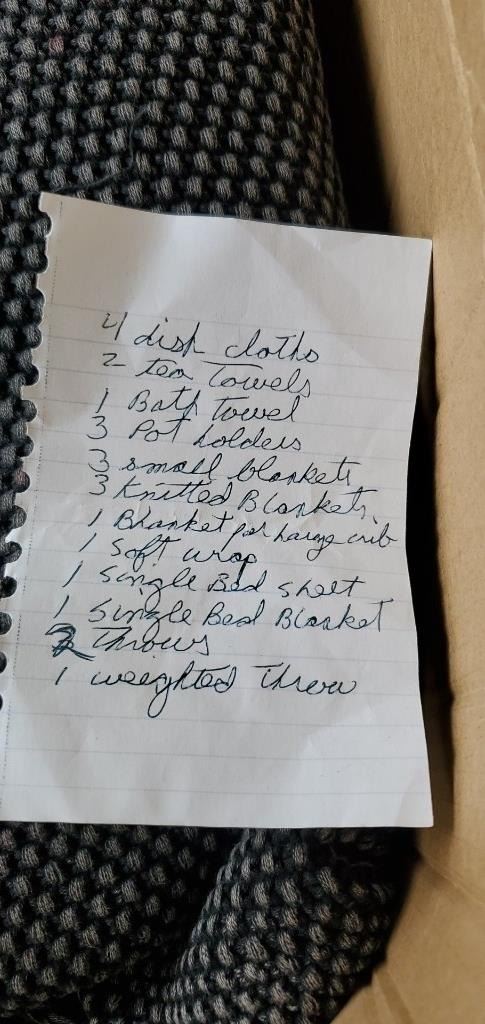 4 dish cloths
2 tea Towels
1 Bath towel
3 Pot holders
3 small blankets
3 Knitted Blankets
1 Blanket for large crib
1 Soft wrap
1 Single Bed sheet
1 Single Bed Blanket
Throws
1 weighted Throw